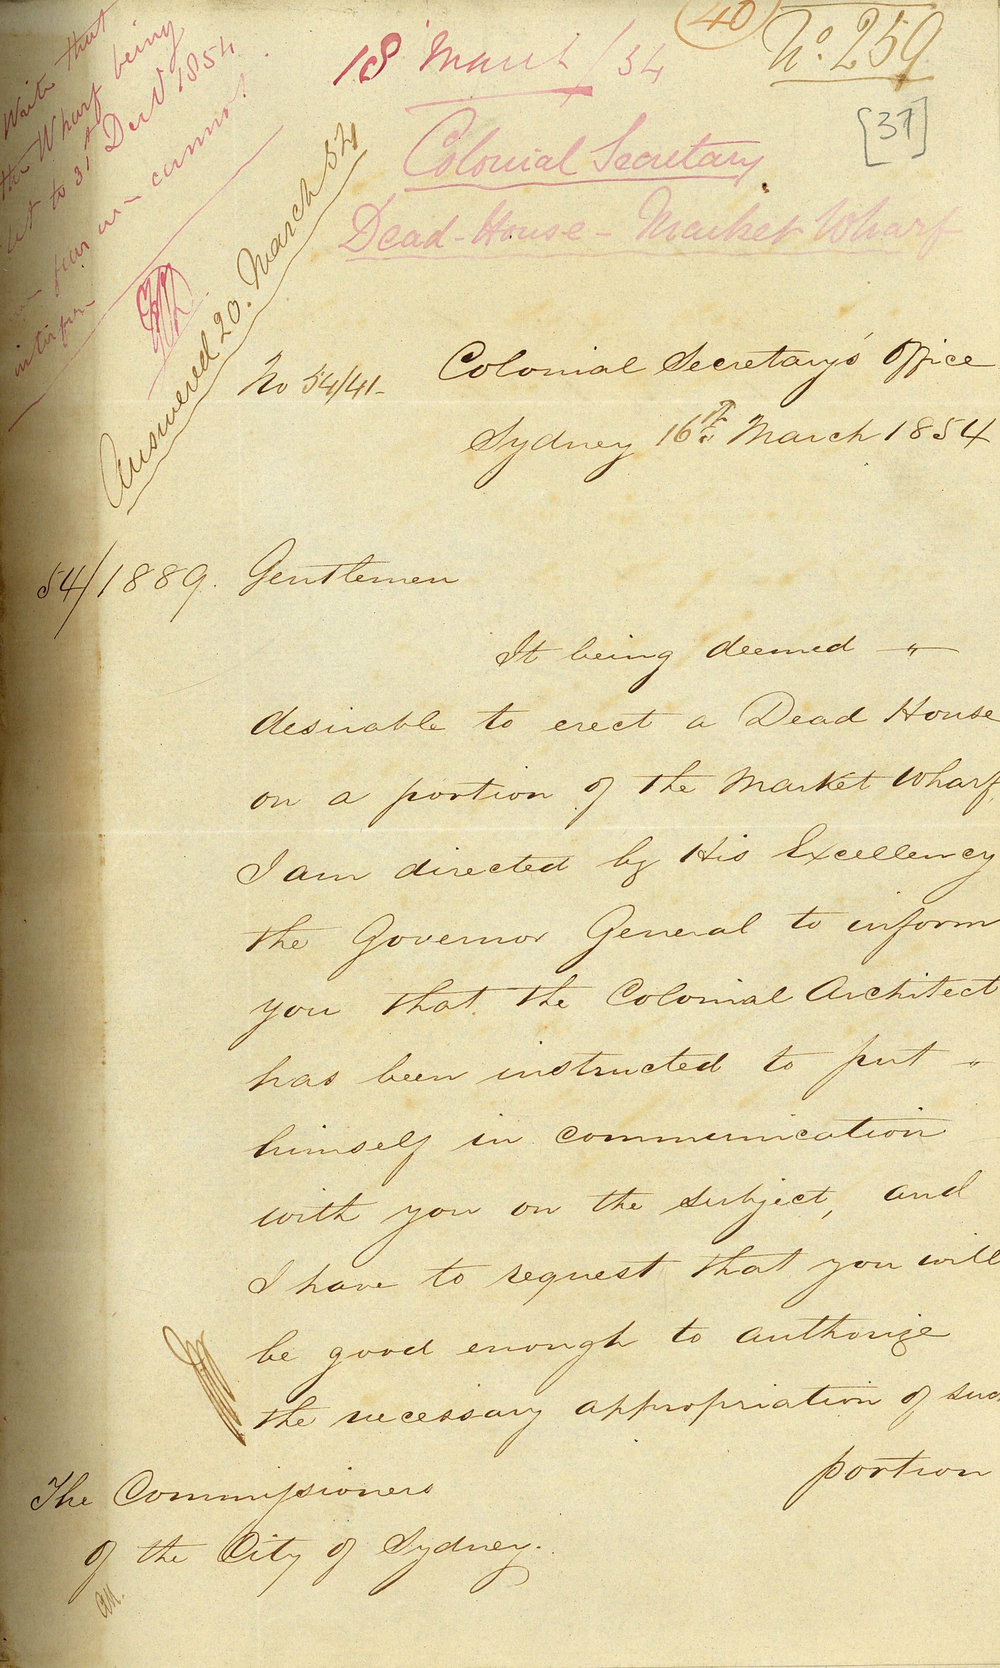 Write that
the Wharf being
let to 31st Decr 1854
we fear we cannot
interfere
Answered 20. March 54
18 March/54
40
No. 259
[37]
Colonial Secretary
Dead-House - Market Wharf
No 54/41-
Colonial Secretary's Office
Sydney 16th March 1854
54/1889.
Gentlemen
It being deemed "
desirable to erect a Dead House
on a portion of the Market Wharf,
I am directed by His Excellency
the Governor General to inform
you that the Colonial Architect
has been instructed to put "
himself in communication
with you on the subject, and
I have to request that you will
be good enough to authorize
the necessary appropriation of such
portion
The Commissioners
of the City of Sydney.